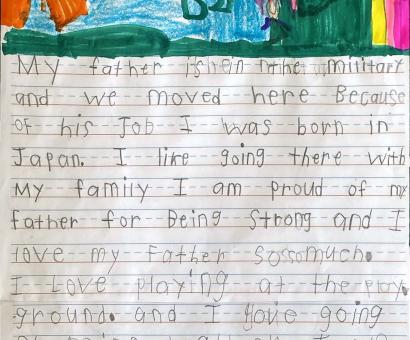 My father is in the military
and we moved here Because
of his Job I was born in
Japan. I like going there with
My family I am proud of my
father for Being Strong and I
love my Father sossomuch.
I Love playing at the play.
ground. and I love going